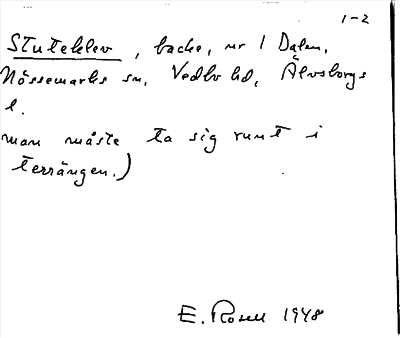 1-2
Stuteklev, backe, nr 1 Dalen,
Nössemarks sn, Vedbo hd, Älvsborgs
l.
man måste ta sig runt i
terrängen.)
E. Rosell 1948